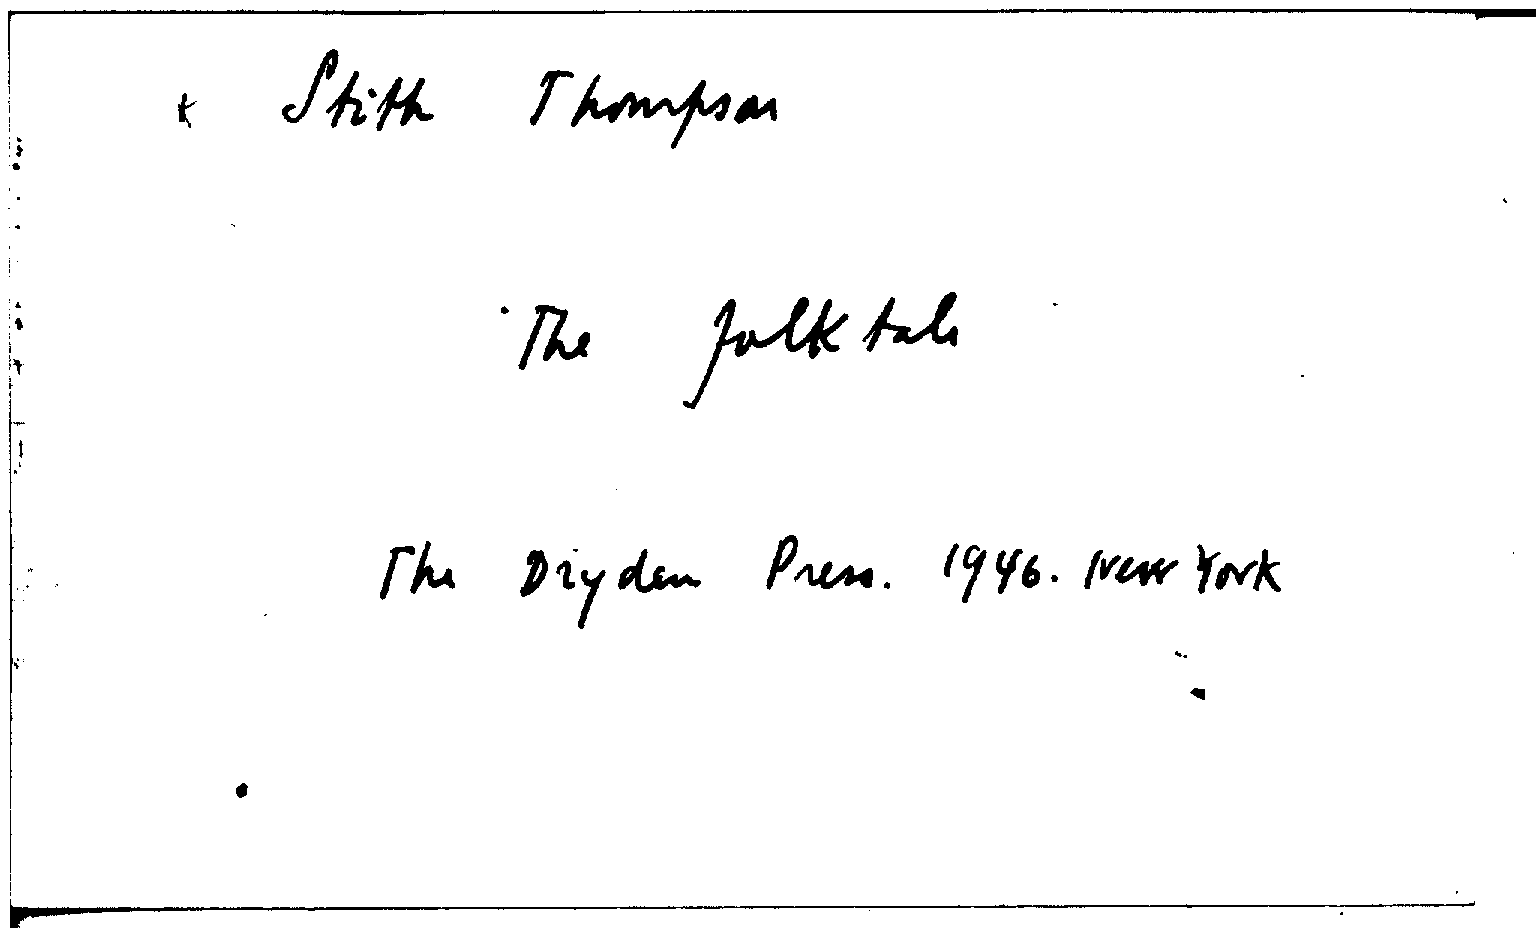 x Stith Thompson
The folktale
The Dryden Press. 1946. New York